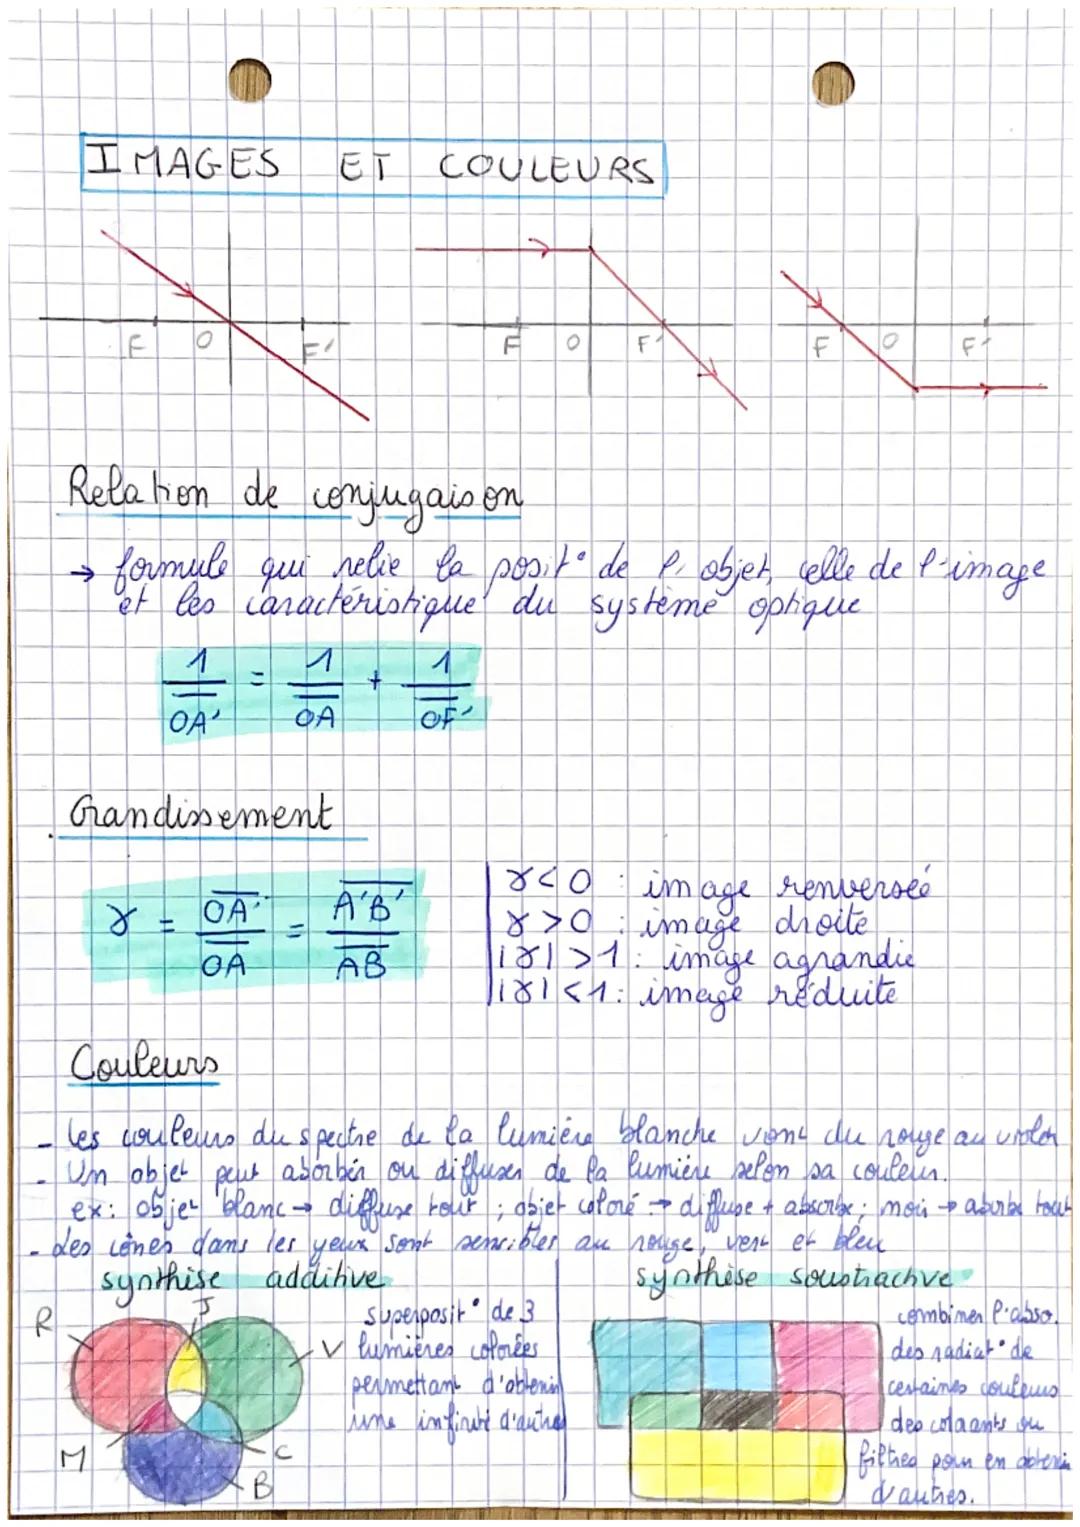 IMAGES ET COULEURS
F O F'
F O F'
F O F'
Relation de conjugaison
→ formule qui relie la posit° de l'objet, celle de l'image
et les caractéristique du système optique
1/OA' = 1/OA + 1/OF'
Grandissement
γ = OA'/OA = A'B'/AB
γ<0 : image renverseé
γ>0 : image droite
|γ|>1 : image agrandie
|γ|<1 : image réduite
Couleurs
- les couleurs du spectre de la lumière blanche vont du rouge au violet
- Un objet peut absorber ou diffuser de la lumière selon sa couleur.
ex: objet blanc → diffuse tout ; objet coloré → diffuse + absorbe ; noir → absorbe tout
- des cônes dans les yeux sont sensibles au rouge, vert et bleu
synthèse additive
R J V M C B
superposit° de 3
lumières colorées
permettant d'obtenir
une infinité d'autres
synthèse soustractive
combiner l'abso.
des radiat° de
certaines couleurs
des colorants ou
filtres pour en obtenir
d'autres.